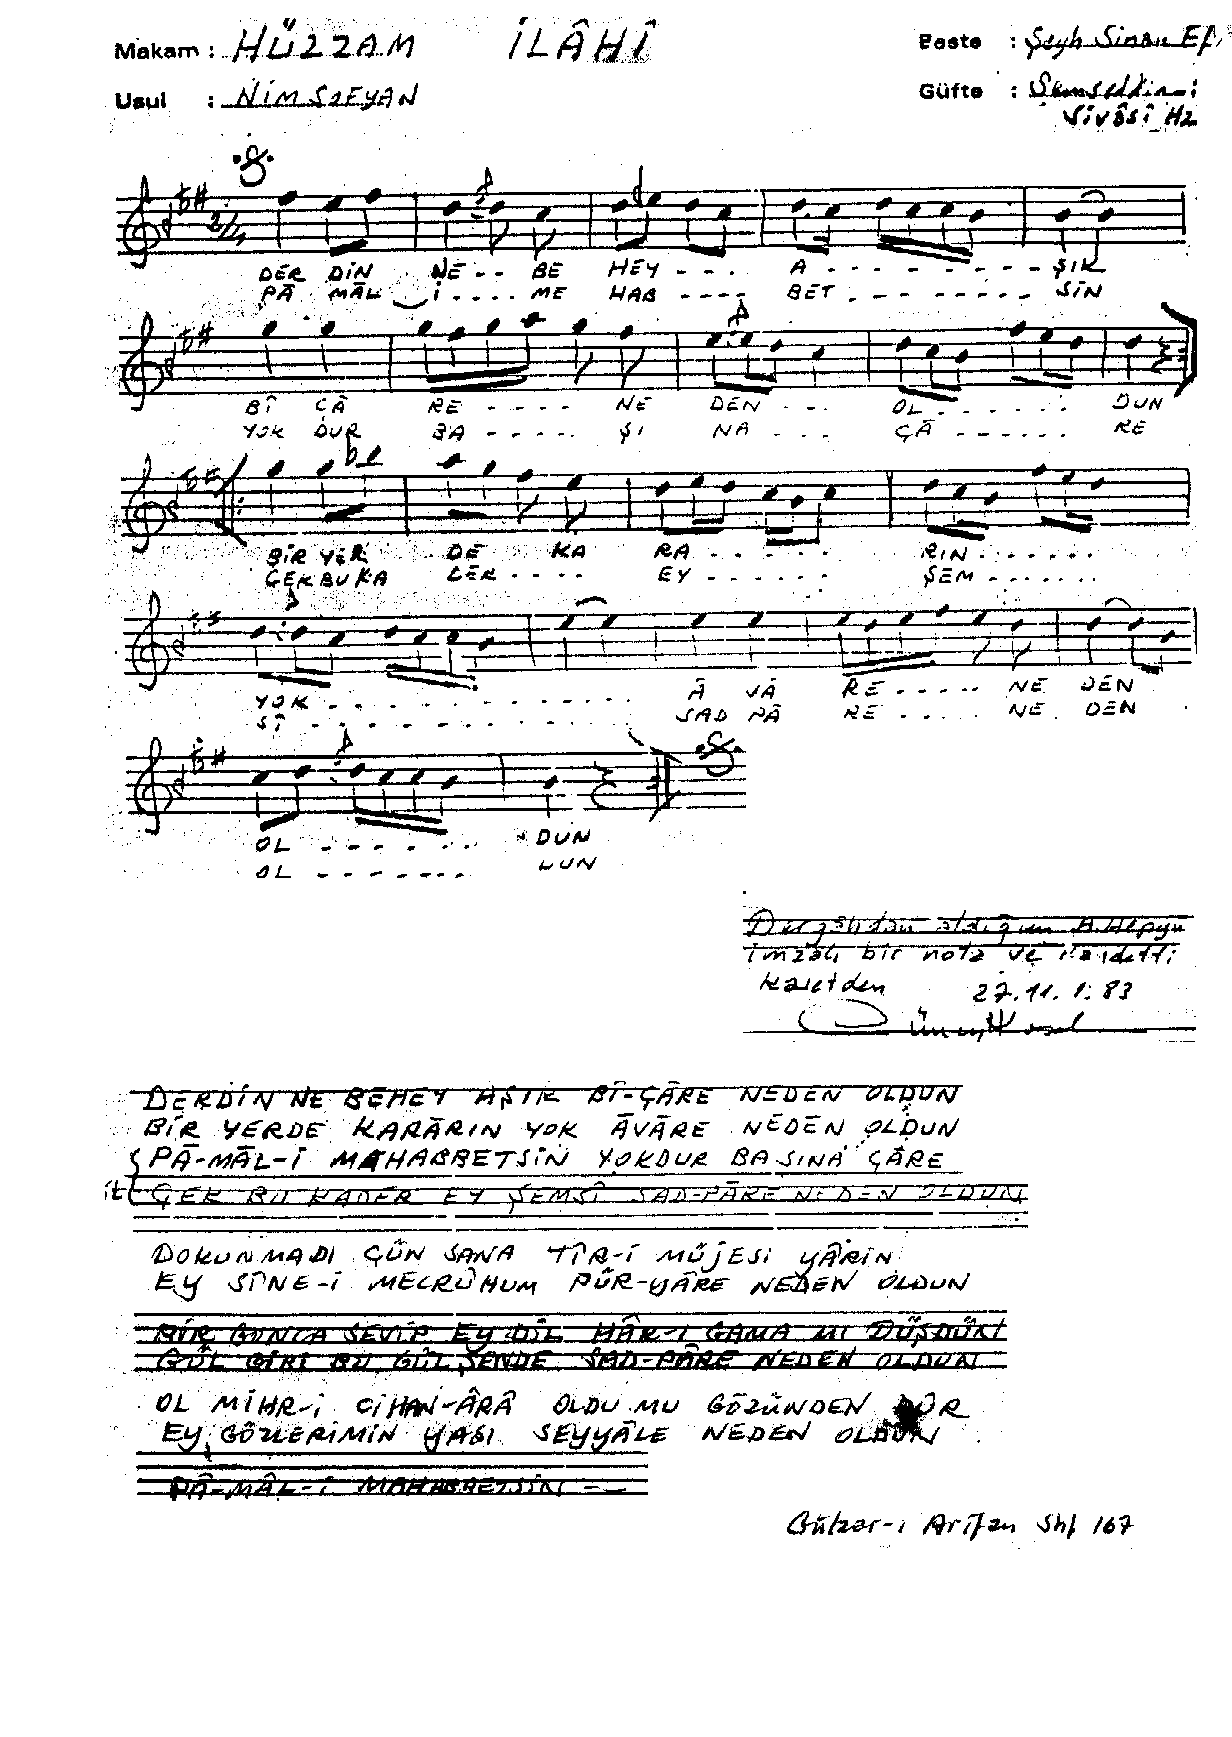 Makam : HÜZZAM İLÂHÎ Beste : Şeyh Sinan Ef.
Usul : NİM SOFYAN Güfte : Şemseddin-i
Sivâsî Hz
DER DİN NE - - BE HEY - - - A - - - - - - - - - ŞIK
PÂ MÂL İ - - - - ME HAB - - - - BET - - - - - - - - SİN
BÎ ÇÂ RE - - - - NE DEN - - - OL - - - - - - DUN
YOK DUR BA - - - - - ŞI NA - - - ÇÂ - - - - - - RE
BİR YER DE KA RA - - - - - - RIN - - - - - -
ÇEK BU KA DER - - - - EY - - - - - - ŞEM - - - - - -
YOK - - - - - - - - - - - - Â VÂ RE - - - - - NE DEN
SÎ - - - - - - - - - - - - SAD PÂ RE - - - - - NE DEN
OL - - - - - - DUN
OL - - - - - - - DUN
Dergâhdan aldığım
imzalı bir nota ve
kasetden 27.11.1.83
DERDİN NE BEHEY AŞIK BÎ-ÇÂRE NEDEN OLDUN
BİR YERDE KARÂRIN YOK ÂVÂRE NEDEN OLDUN
PÂ-MÂL-İ MAHABBETSİN YOKDUR BAŞINA ÇÂRE
ÇEK BU KADER EY ŞEMSÎ SAD-PÂRE NEDEN OLDUN
DOKUNMADI ÇÜN SANA TÎR-İ MÜJESİ YÂRİN
EY SÎNE-İ MECRÛHUM PÜR-YÂRE NEDEN OLDUN
BİR GONCA SEVİP EY DİL HÂR-I GAMA MI DÜŞDÜN
GÜL GİBİ BU GÜLŞENDE SAD-PÂRE NEDEN OLDUN
OL MİHR-İ CİHAN-ÂRÂ OLDU MU GÖZÜNDEN DÛR
EY GÖZLERİMİN YAŞI SEYYÂLE NEDEN OLDUN
PÂ-MÂL-İ MAHABBETSİN - -
Gülzar-ı Arifan Shf 167